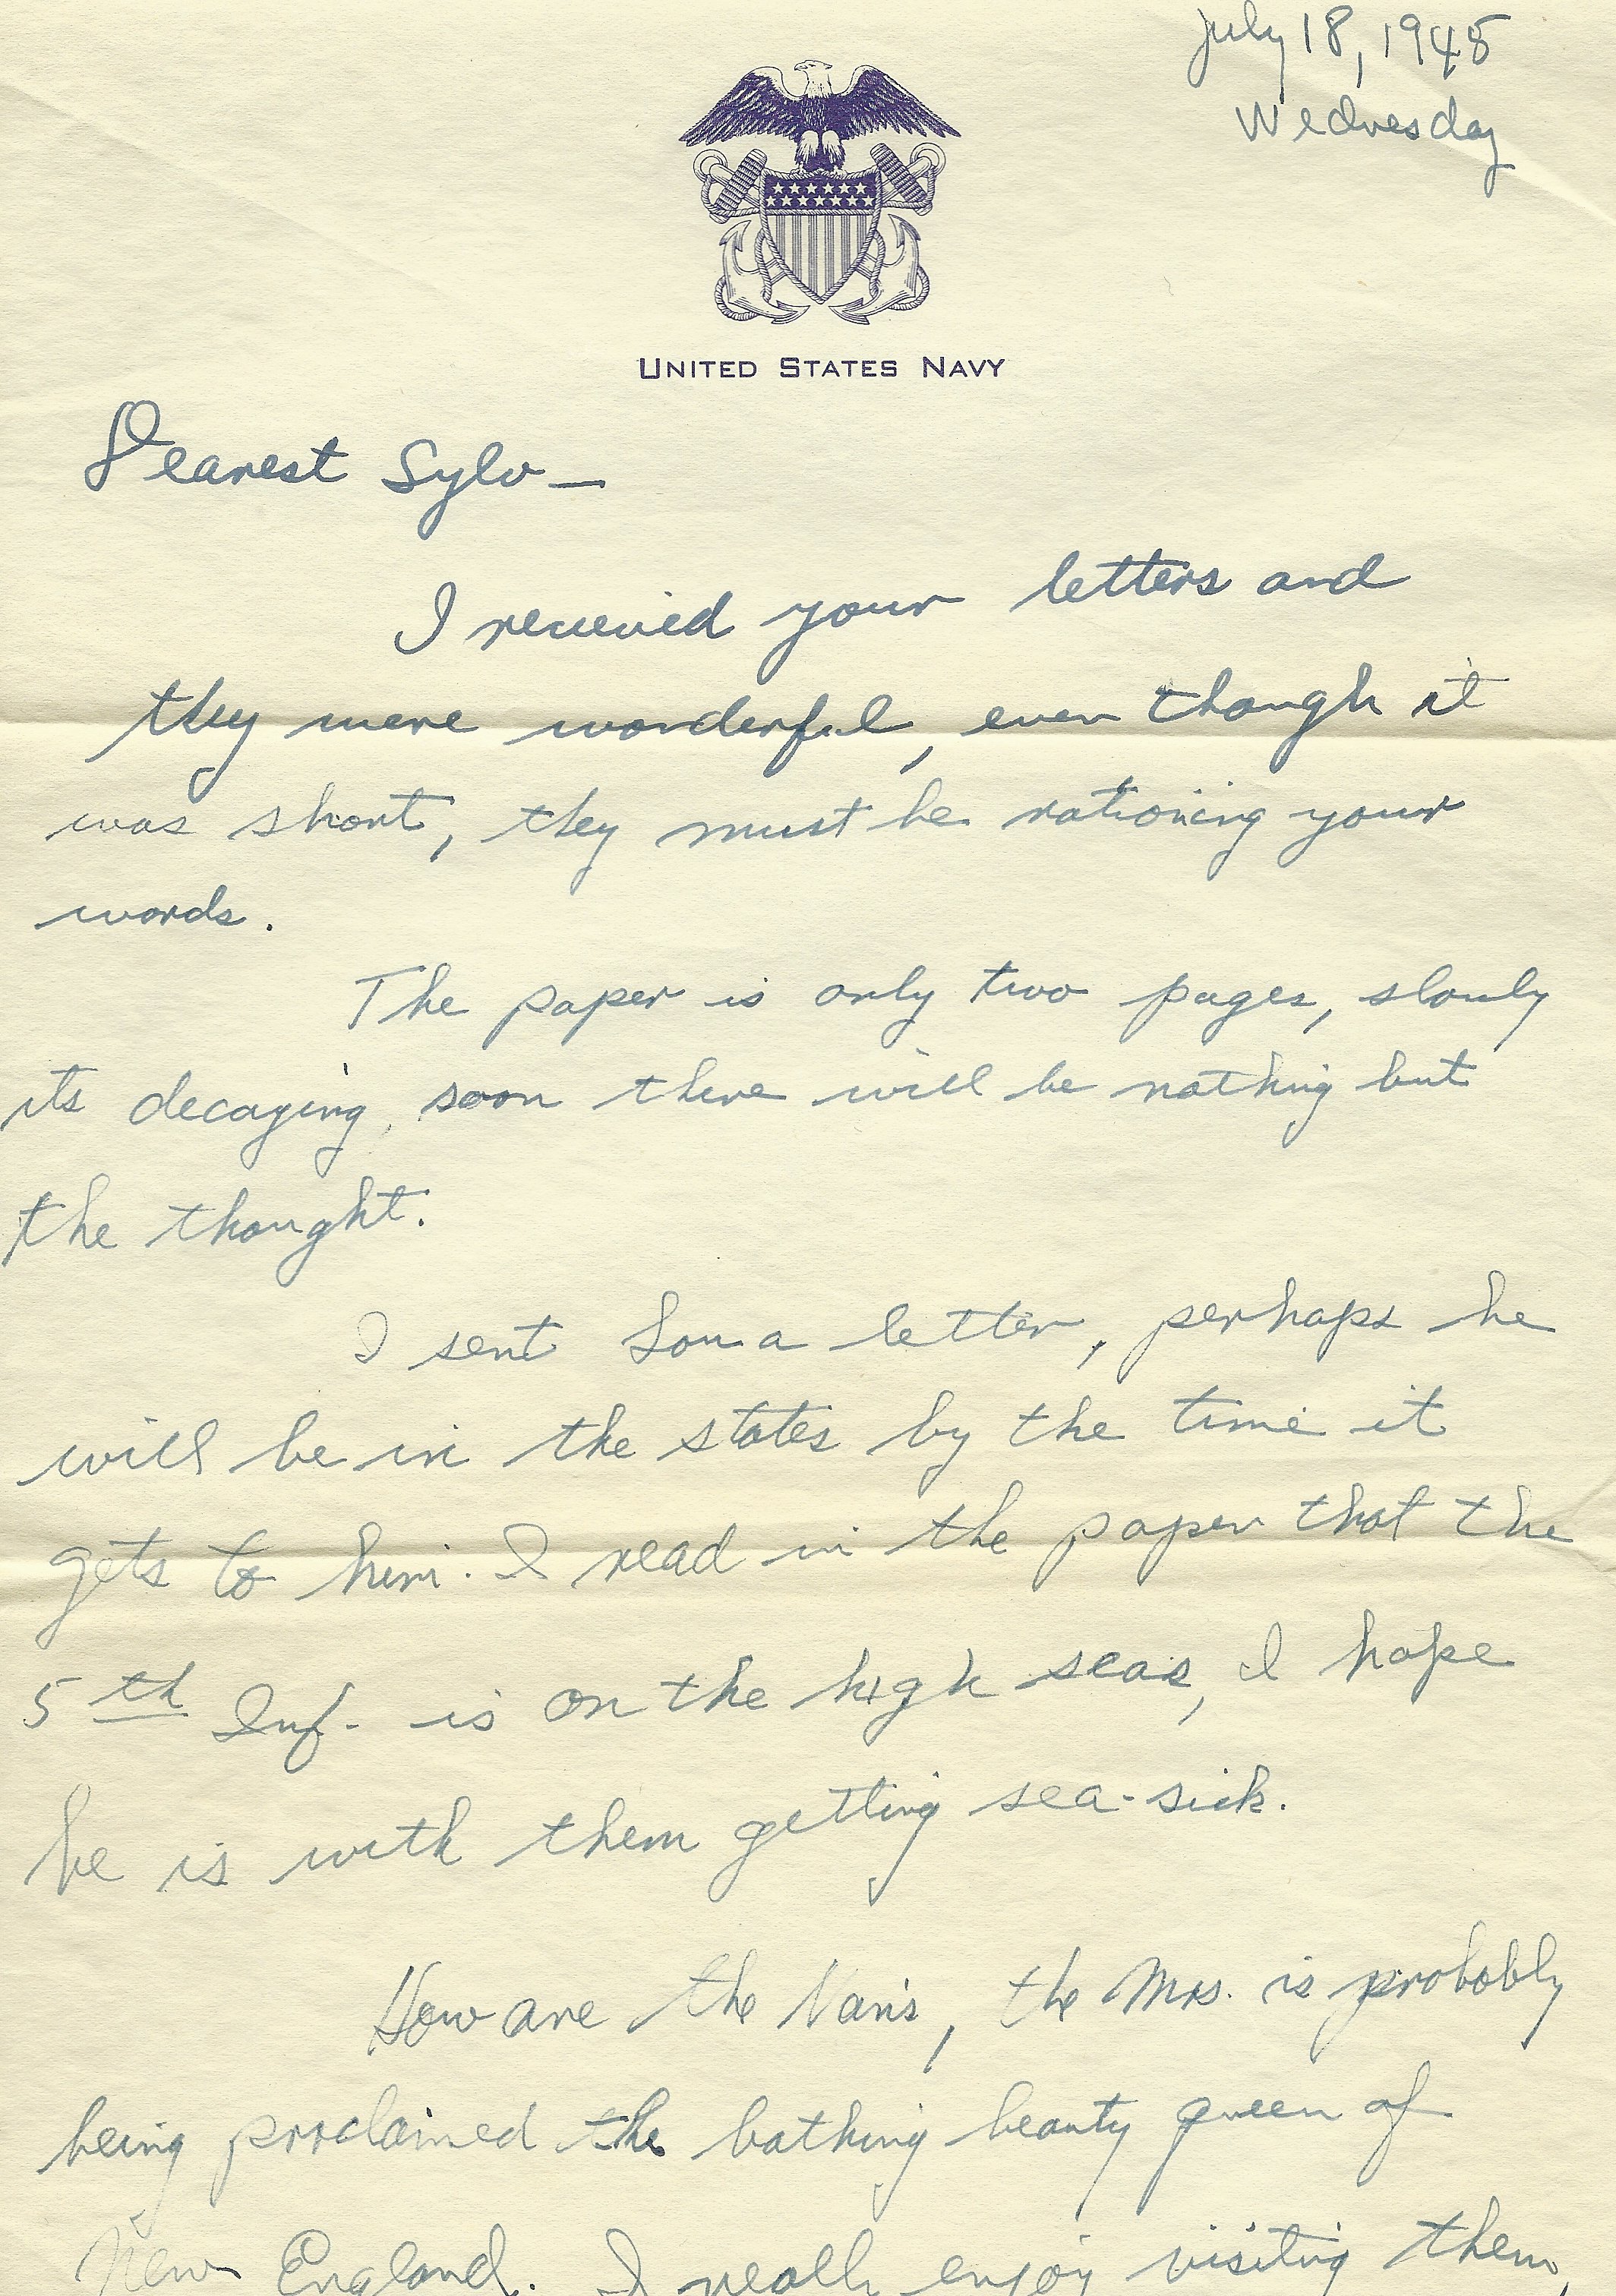 July 18, 1945
Wednesday
UNITED STATES NAVY
Dearest Sylv —
I received your letters and
they were wonderful, even though it
was short, they must be rationing your
words.
The paper is only two pages, slowly
its decaying, soon there will be nothing but
the thought.
I sent Lou a letter, perhaps he
will be in the states by the time it
gets to him. I read in the paper that the
5th Inf. is on the high seas, I hope
he is with them getting sea-sick.
How are the Van's, the Mrs. is probobly
being proclaimed the bathing beauty queen of
New England. I really enjoy visiting them,